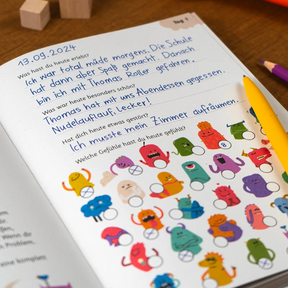 Tag 1
13.09.2024
Was hast du heute erlebt?
Ich war total müde morgens. Die Schule
hat dann aber Spaß gemacht. Danach
bin ich mit Thomas Roller gefahren.
Was war heute besonders schön?
Thomas hat mit uns Abendessen gegessen.
Nudelauflauf. Lecker!
Hat dich heute etwas gestört?
Ich musste mein Zimmer aufräumen.
Welche Gefühle hast du heute gefühlt?